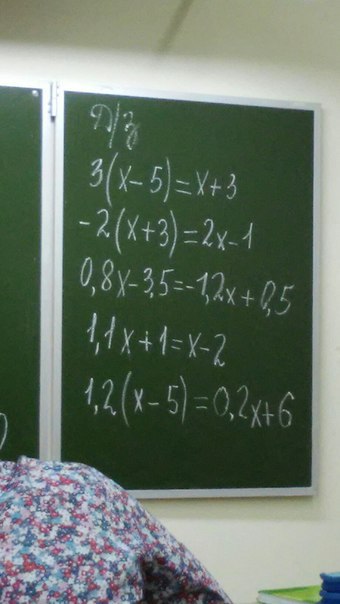 Д/з
3(x-5)=x+3
-2(x+3)=2x-1
0,8x-3,5=-1,2x+0,5
1,1x+1=x-2
1,2(x-5)=0,2x+6